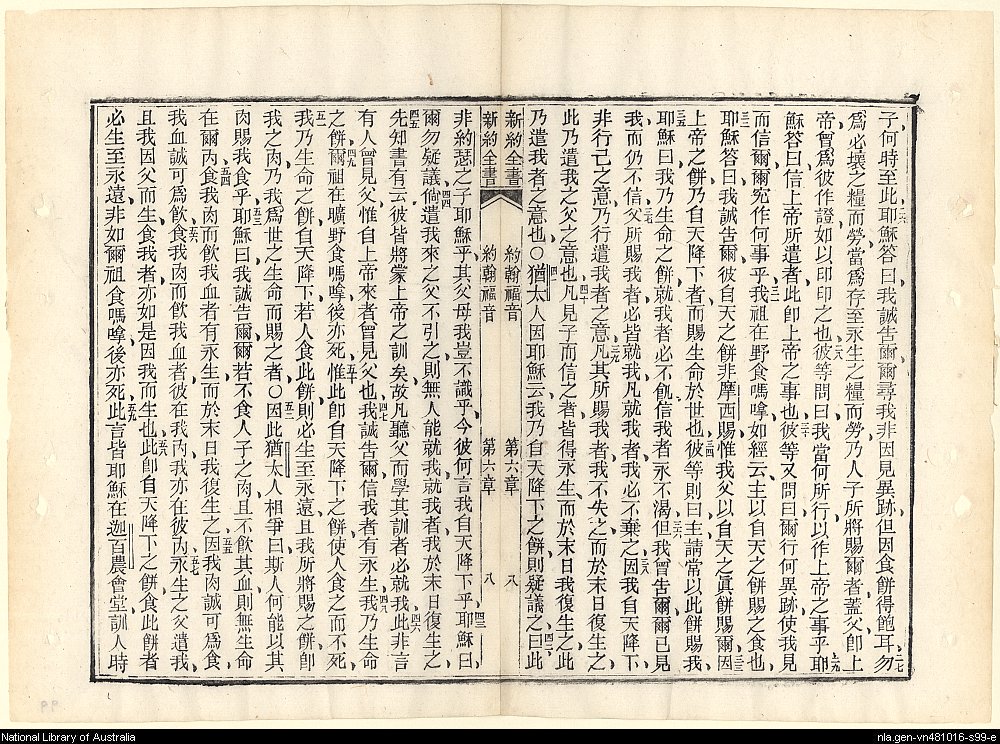 子何時至此耶穌答曰我誠告爾爾尋我非因見異跡但因食餅得飽耳勿
爲必壞之糧而勞當爲存至永生之糧而勞乃人子所將賜爾者蓋父卽上
帝曾爲彼作證如以印印之也彼等問曰我當何所行以作上帝之事乎耶
穌答曰信上帝所遣者此卽上帝之事也彼等又問曰爾行何異跡使我見
而信爾爾究作何事乎我祖在野食嗎嗱如經云主以自天之餅賜之食也
耶穌答曰我誠告爾彼自天之餅非摩西賜惟我父以自天之眞餅賜爾因
上帝之餅乃自天降下者而賜生命於世也彼等則曰主請常以此餅賜我
耶穌曰我乃生命之餅就我者必不飢信我者永不渴但我曾吿爾爾已見
我而仍不信父所賜我者必皆就我凡就我者我必不棄之因我自天降下
非行己之意乃行遣我者之意凡其所賜我者我不失之而於末日復生之
此乃遣我之父之意也凡見子而信之者皆得永生而於末日我復生之此
乃遣我者之意也〇猶太人因耶穌云我乃自天降下之餅則疑議之曰此
新約全書 約翰福音 第六章 八
新約全書 約翰福音 第六章 八
非約瑟之子耶穌乎其父母我豈不識乎今彼何言我自天降下乎耶穌曰
爾勿疑議倘遣我來之父不引之則無人能就我就我者我於末日復生之
先知書有云彼皆將蒙上帝之訓矣故凡聽父而學其訓者必就我此非言
有人曾見父惟自上帝來者曾見父也我誠告爾信我者有永生我乃生命
之餅爾祖在曠野食嗎嗱後亦死惟此卽自天降下之餅使人食之而不死
我乃生命之餅自天降下若人食此餅則必生至永遠且我所將賜之餅卽
我之肉乃我爲世之生命而賜之者〇因此猶太人相爭曰斯人何能以其
肉賜我食乎耶穌曰我誠吿爾爾若不食人子之肉且不飲其血則無生命
在爾內食我肉而飲我血者有永生而於末日我復生之因我肉誠可爲食
我血誠可爲飲食我肉而飲我血者彼在我內我亦在彼內永生之父遣我
且我因父而生食我者亦如是因我而生也此卽自天降下之餅食此餅者
必生至永遠非如爾祖食嗎嗱後亦死此言皆耶穌在迦百農會堂訓人時
National Library of Australia
nla.gen-vn481016-s99-e